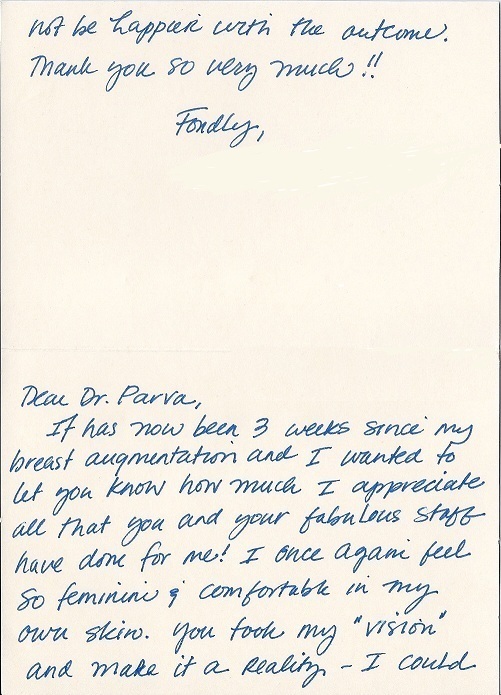 Dear Dr. Parva,
It has now been 3 weeks since my
breast augmentation and I wanted to
let you know how much I appreciate
all that you and your fabulous staff
have done for me! I once again feel
so feminine & comfortable in my
own skin. You took my "vision"
and make it a reality - I could
not be happier with the outcome.
Thank you so very much!!
Fondly,